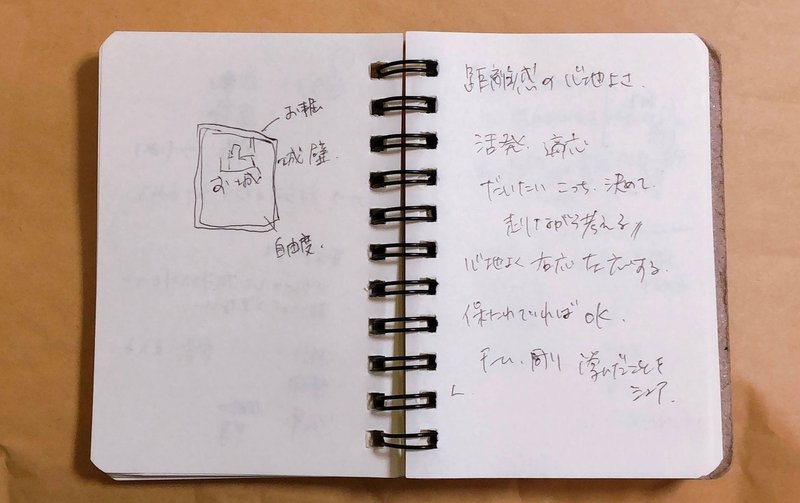 お堀
城壁
お城
自由度
距離感の心地よさ
活発、適応
だいたい こっち、決めて
走りながら考える
心地よく 右応左応する
保たれていれば OK
学んだことを
シェア